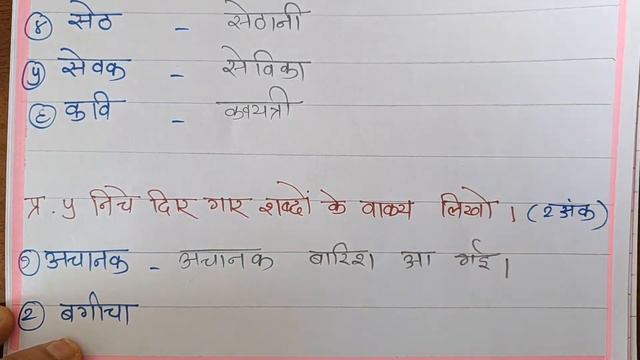 ४ सेठ - सेठानी
५ सेवक - सेविका
६ कवि - कवयत्री
प्र.५ निचे दिए गए शब्दों के वाक्य लिखो। (२ अंक)
१ अचानक - अचानक बारिश आ गई।
२ बगीचा